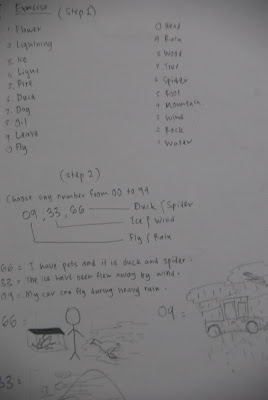 Exercise (Step 1)
Flower
Lightning
Ice
Light
Fire
Duck
Dog
Oil
Leave
Fly
0 Head
9 Rain
Wood
Tree
6 Spider
5 Root
4 Mountain
3 Wind
2 Rock
1 Water
(Step 2)
Choose any number from 00 to 99
09, 33, 66 Duck & Spider
Ice & Wind
Fly & Rain
66 = I have pets and it is duck and spider.
33 = the ice have been flew away by wind.
09 = My car can fly during heavy rain.
66 =
09 =
33 =